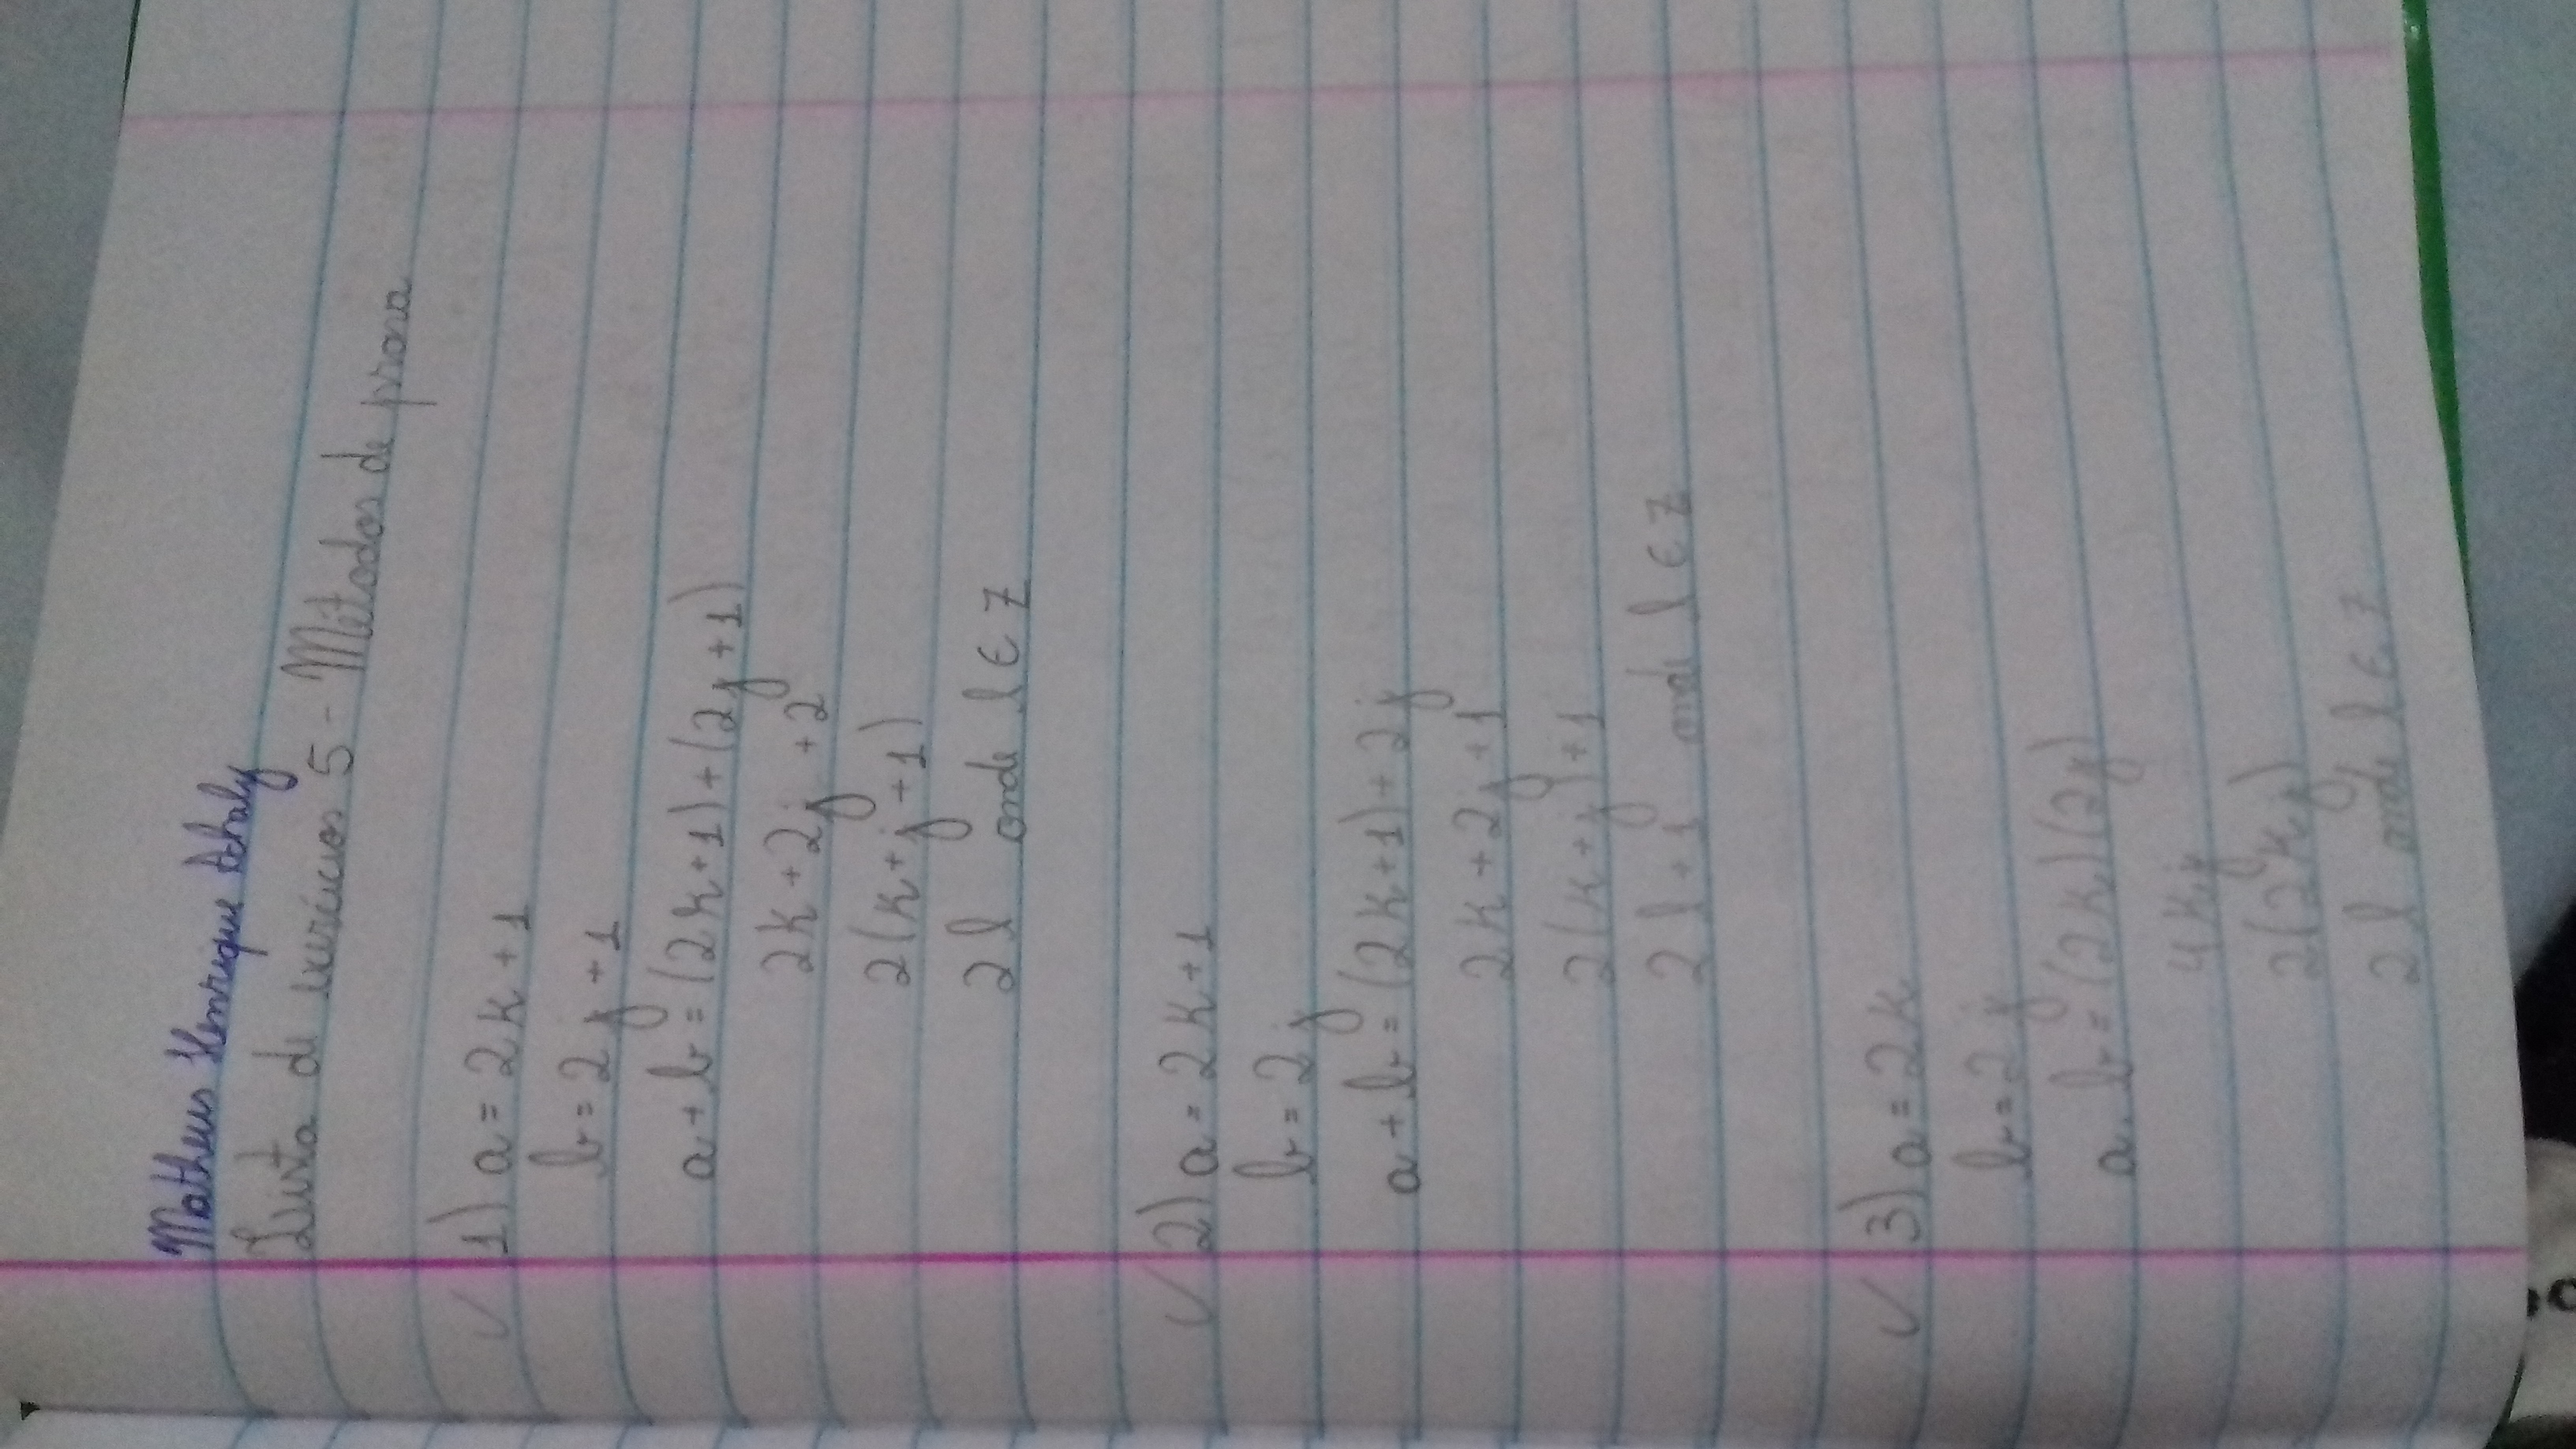 Matheus Henrique Schaly
Lista de exercícios 5 - Métodos de prova
✓ 1) a = 2k + 1
b = 2j + 1
a + b = (2k+1) + (2j+1)
2k + 2j + 2
2(k+j+1)
2l onde l ∈ Z
✓ 2) a = 2k+1
b = 2j
a + b = (2k+1) + 2j
2k + 2j + 1
2(k+j)+1
2l+1 onde l ∈ Z
✓ 3) a = 2k
b = 2j
a . b = (2k)(2j)
4kj
2(2kj)
2l onde l ∈ Z